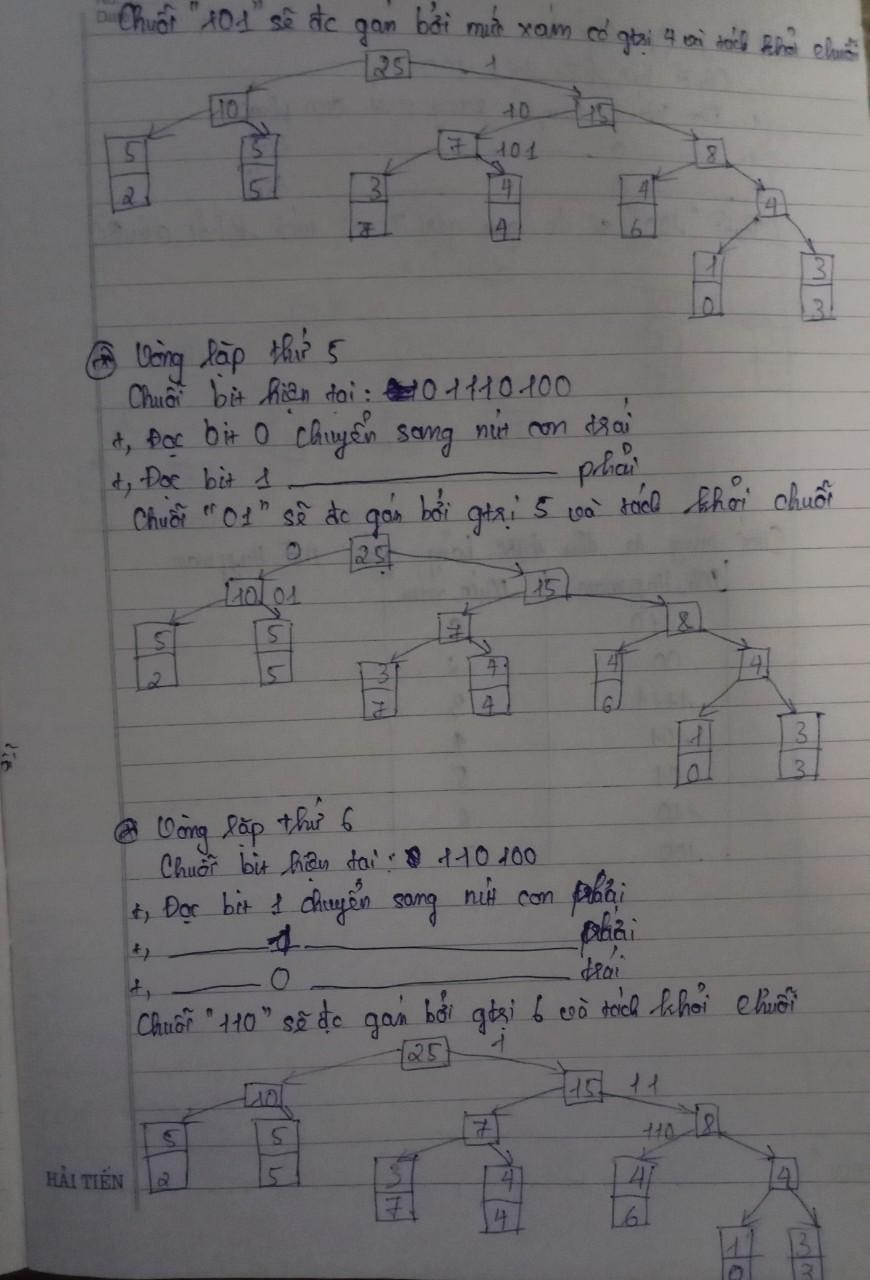 Chuỗi "101" sẽ đc gán bởi mức xám có gtrị 4 và tách khỏi chuỗi
25 1
10 10 15
5 5 7 101 8
2 5 3 4 4 4
7 4 6
1 3
0 3
Vòng lặp thứ 5
Chuỗi bit hiện tại: 01110100
+, Đọc bit 0 chuyển sang nút con trái
+, Đọc bit 1 phải
Chuỗi "01" sẽ đc gán bởi gtrị 5 và tách khỏi chuỗi
0 25
10 01 15
5 5 7 8
2 5 3 4 4 4
7 4 6
1 3
0 3
Vòng lặp thứ 6
Chuỗi bit hiện tại: 110100
+, Đọc bit 1 chuyển sang nút con phải
+, 1 phải
+, 0 trái
Chuỗi "110" sẽ đc gán bởi gtrị 6 và tách khỏi chuỗi
25 1
10 15 11
5 5 7 110 8
2 5 3 4 4 4
7 4 6
1 3
0 3
HẢI TIẾN